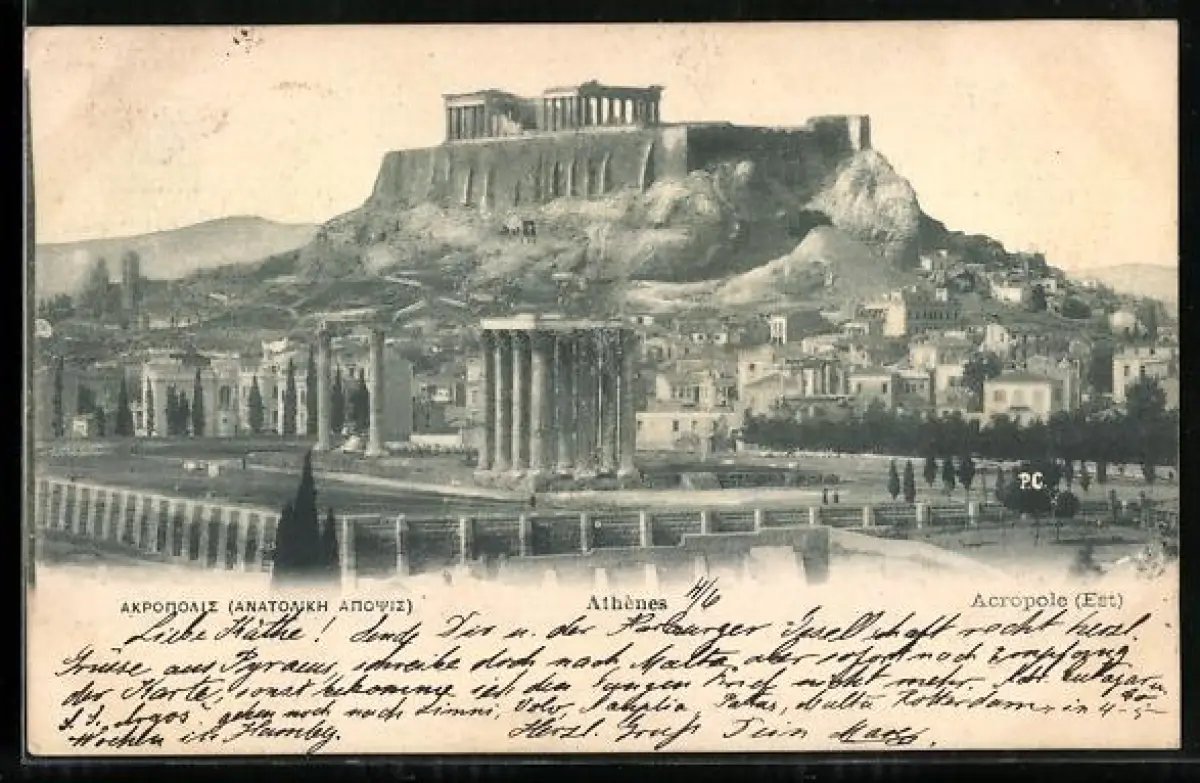 P.C.
ΑΚΡΟΠΟΛΙΣ (ΑΝΑΤΟΛΙΚΗ ΑΠΟΨΙΣ) Athènes 4/6 Acropole (Est)
Liebe Käthe! Sende Dir u. der Harburger Gesellschaft recht herzl.
Grüsse aus Pyraeus, schreibe doch nach Malta, aber sofort nach Empfang
der Karte, sonst bekomme ich den Brief nicht mehr.
S.S. Argos gehen noch nach Limni, Volo, Nauplia, Patras, Malta Rotterdam, in 4-5
Wochen in Hamburg. Herzl. Gruß Dein Max.